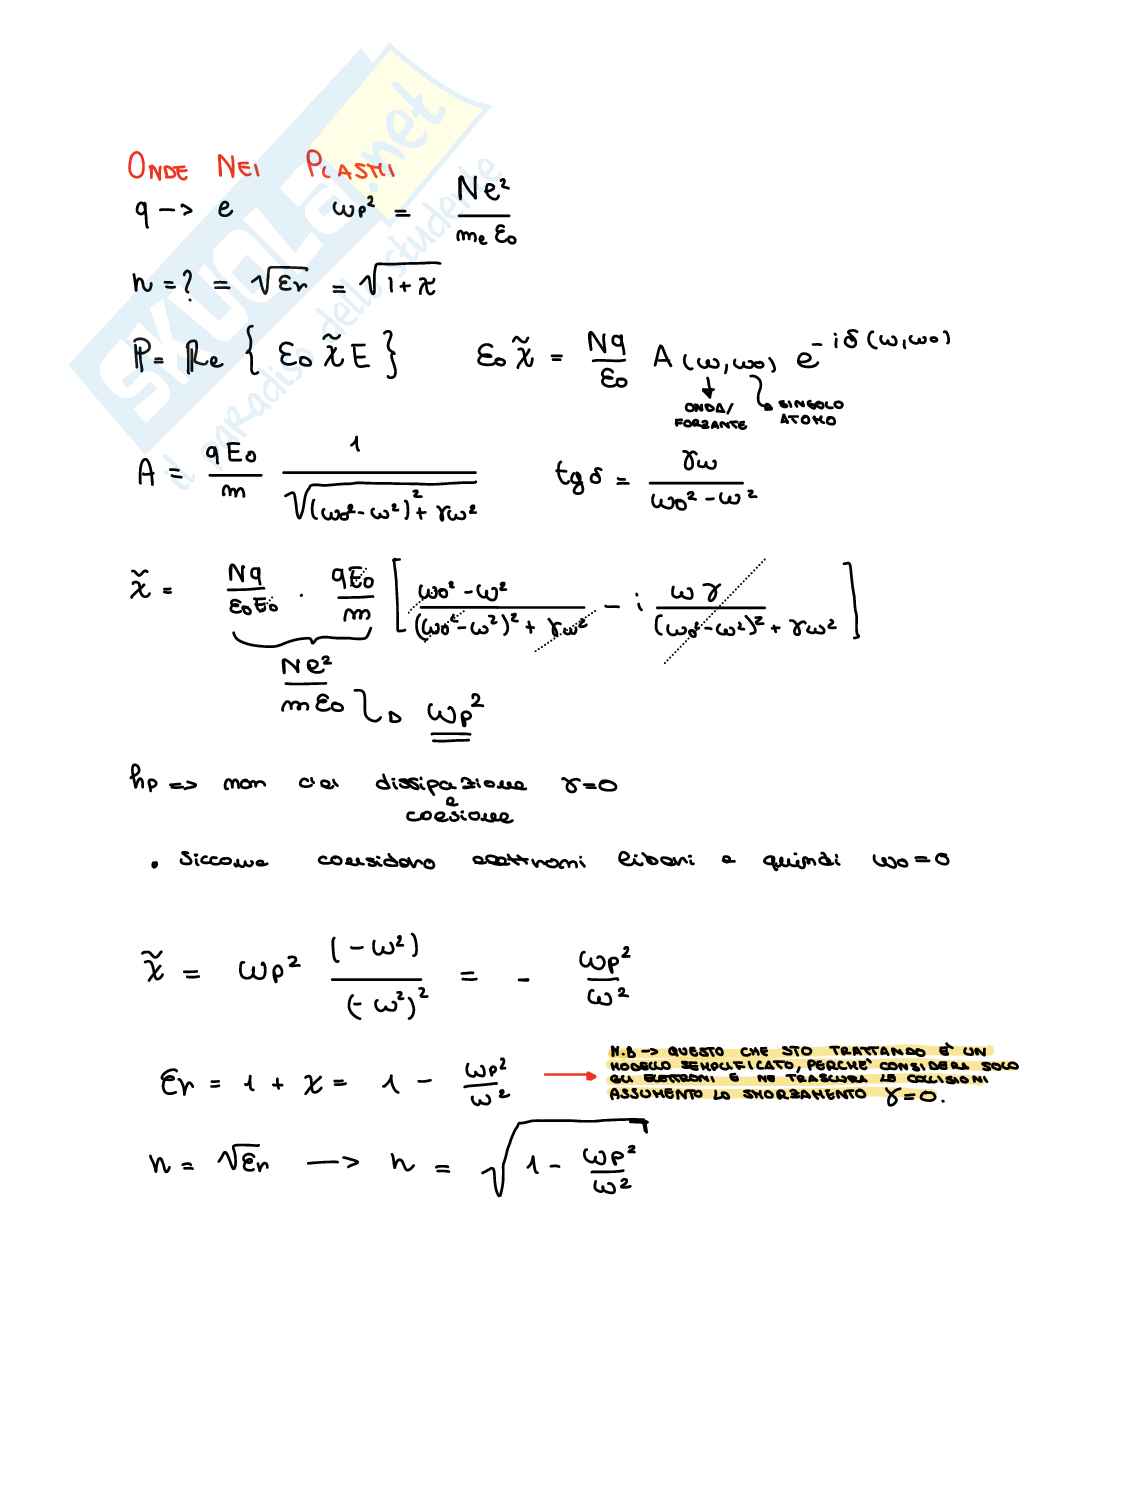 ONDE NEI PLASMI
q -> e ωp² = Ne² / me ε0
n = ? = √εr = √1+χ
P = Re { ε0 χ̃ E } ε0 χ̃ = Nq / ε0 A(ω,ω0) e^-iδ(ω,ω0)
ONDA/ FORZANTE
SINGOLO ATOMO
A = qE0 / m 1 / √(ω0²-ω²)²+γω² tgδ = γω / ω0²-ω²
χ̃ = Nq / ε0E0 · qE0 / m [ ω0²-ω² / (ω0²-ω²)²+γω² - i ωγ / (ω0²-ω²)²+γω² ]
Ne² / mε0 -> ωp²
hp => non c'è dissipazione γ=0
e
coesione
• Siccome considero elettroni liberi e quindi ω0=0
χ̃ = ωp² (-ω²) / (-ω²)² = - ωp² / ω²
εr = 1 + χ = 1 - ωp² / ω²
N.B -> QUESTO CHE STO TRATTANDO E' UN
MODELLO SEMPLIFICATO, PERCHE' CONSIDERA SOLO
GLI ELETTRONI E NE TRASCURA LE COLLISIONI
ASSUMENTO LO SMORZAMENTO γ=0.
n = √εr -> n = √1 - ωp² / ω²
SKUOLA.net
il paradiso dello studente